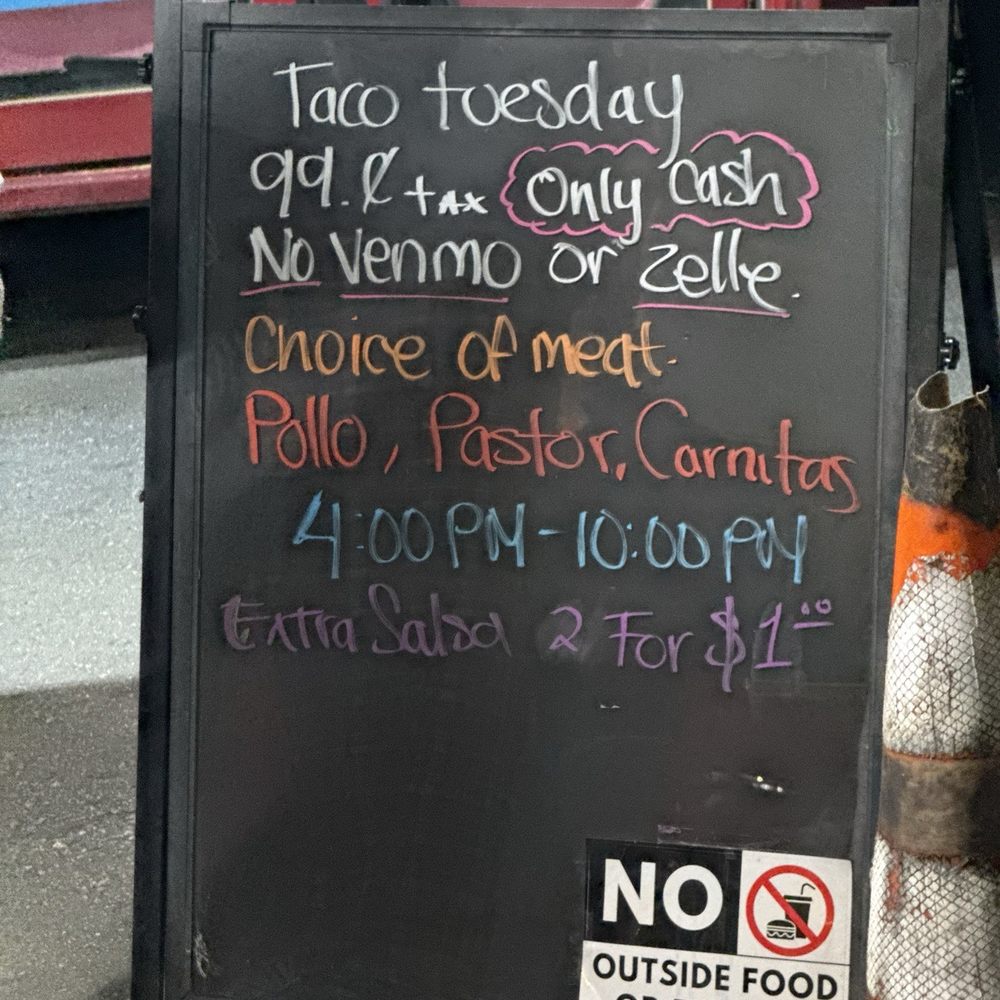 Taco tuesday
99.¢ + tax Only Cash
No Venmo or Zelle.
Choice of meat.
Pollo, Pastor, Carnitas
4:00 PM - 10:00 PM
Extra Salsa 2 For $1.00
NO
OUTSIDE FOOD